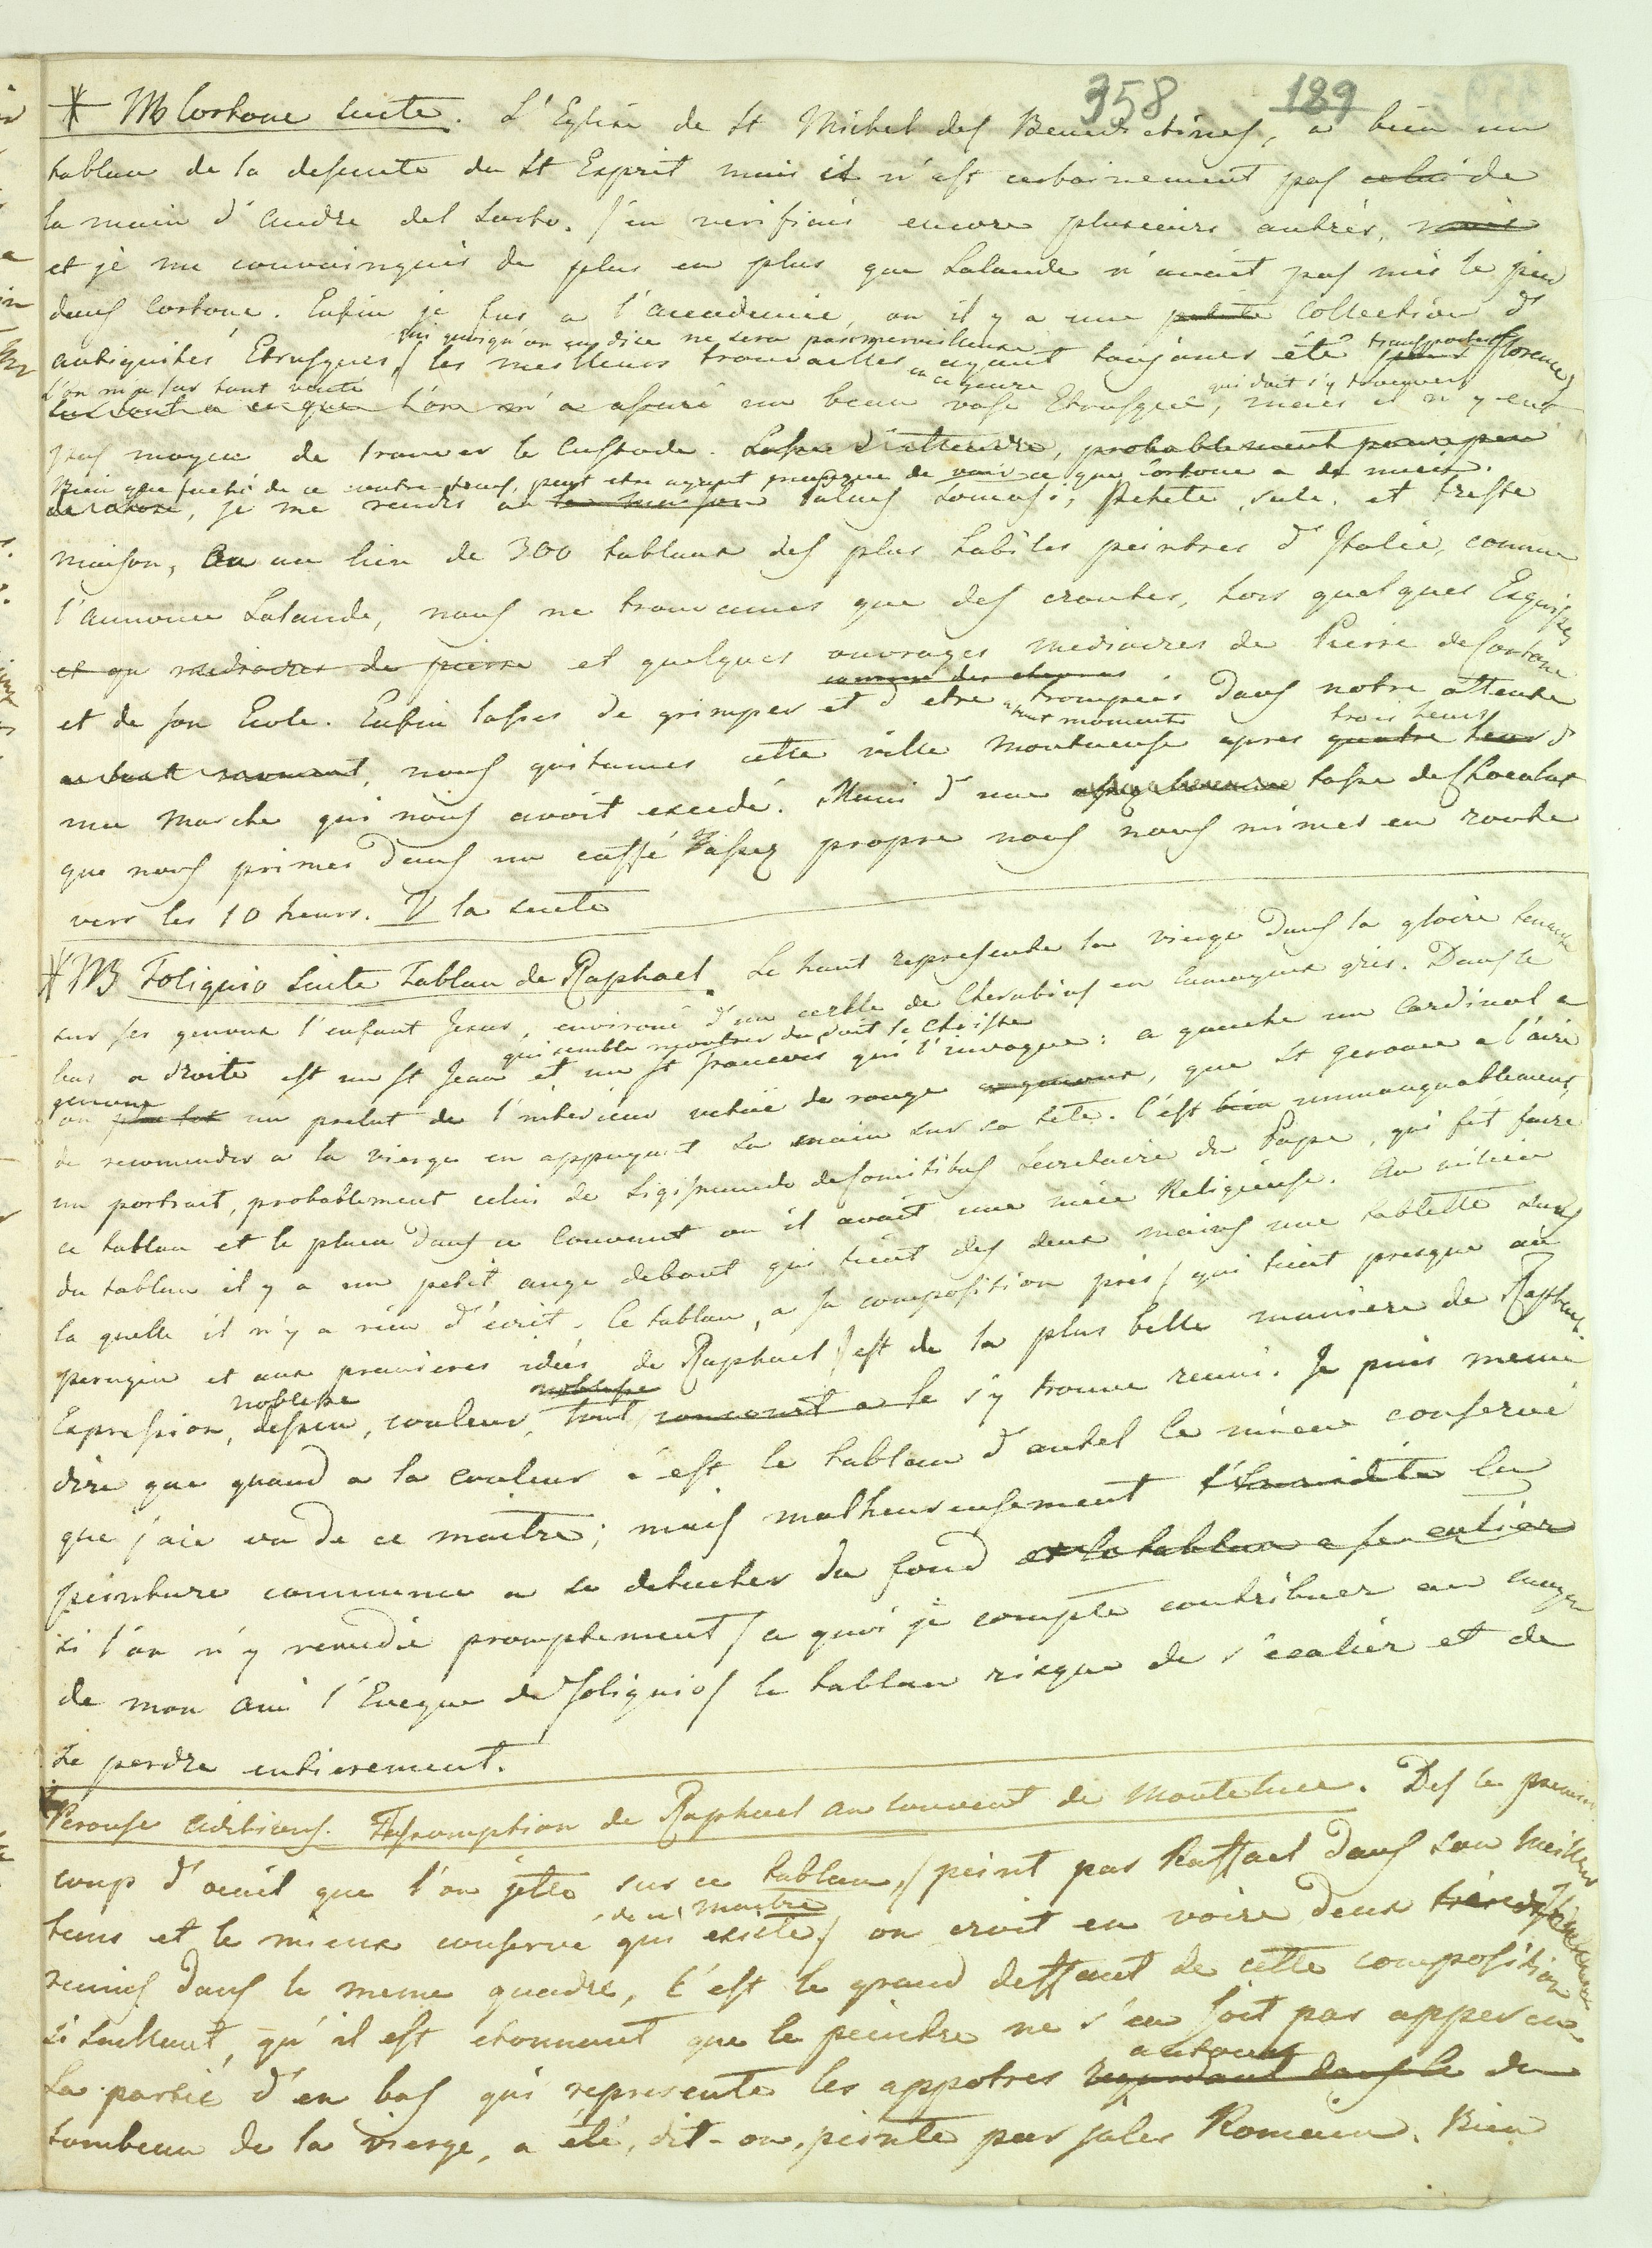 358 189
* NB Cortone suite. L'Eglise de St Michel des Benedictines, a bien un
tablau de la descente du St Esprit mais il n'est certainement pas celui de
la main d'Andre del Sarto. J'en verifiais encore plusieurs autres, mais
et je me convainquis de plus en plus que Lalande n'avait pas mis le pied
dans Cortone. Enfin je fus a l'accademie, ou il y a une petite Collection d'
qui quoiqu'on en dise ne sera pas merveilleuse
antiquités Etrusques, / les meilleurs trouvailles ayant toujours été transportés Florence)
l'on m'a sur tout vanté en ce genre qui doit s'y trouver
l'on m'a assuré un beau vase Etrusque, mais il n'y eut
pas moyen de trouver le Custode. Lasse d'attendre, probablement pour peu
Bien que faché de ce contre tems, peut etre ayant presque de voir ce que Cortone a de mieux.
de chose, je me rendis a la maison Palais Tomasi, Petite, sale, et treste
maison, Ou au lieu de 300 tablaux des plus habiles peintres d'Italie, comme
l'annonce Lalande, nous ne trouvames que des croutes, hors quelques Esquisses
et qu mediocres de pierre et quelques ouvrages mediocres de Pierre de Cortone
comme des chevres
et de son Ecole. Enfin lasses de grimper et d'etre trompés dans notre attente
a tout moment trois heures
a tout moment, nous quitames cette ville montueuse apres quatre heures d'
une marche qui nous avoit excedé. Muni d'une tasse de Chocolat
que nous primes dans un caffé assez propre nous nous mimes en route
vers les 10 heurs. V la suite
* NB Foligno suite Tablau de Raphael. Le haut represente la vierge dans la gloire tenante
sur ses genoux l'enfant Jesus, environé d'un cercle de Cherubins en Camayeux gris. Dans le
qui semble montrer du doit le Christe
bas a droite est un St Jean et un St francois qui l'invoque: a gauche un Cardinal a
genoux
ou plutot un prelat de l'interieur vetüe de rouge a genoux, que St Gerome a l'aire
de recomender a la vierge en appuyant la main sur sa tete. C'est bien immanquablement,
un portrait, probablement celui de Sigismundo de Comitibus Secretaire du Pape, qui fit faire
ce tablau et le placa dans ce Couvent ou il avait une niece Religieuse. Au milieu
du tablau il y a un petit ange debout qui tient des deux mains une tablette sur
la quelle il n'y a rien d'ecrit. Ce tablau, a sa composition pres / qui tient presque au
perugin et aux premieres idées de Raphael / est de la plus belle maniere de Raphael.
noblesse noblesse
Expression, dessein, couleur, tout concourt a le s'y trouve reuni. Je puis meme
dire que quand a la couleur c'est le tablau d'autel le mieux conservé
que j'aie vu de ce maitre; mais malheureusement l'humidité la
peinture commence a se detacher du fond et le tablau a se entier
si l'on n'y remedie promptement / a quoi je compte contribuer au moyen
de mon ami l'Eveque de Foligno / le tablau risque de s'ecalier et de
se perdre entierement.
Perouse aditions. Fassomption de Raphael au couvent de Monteluce. Des le premier
coup d'oeuil que l'on jette sur ce tablau, / peint par Raffael dans son meilleur
de ce maitre
tems et le mieux conservé qui existe / on croit en voire deux
reunis dans le meme quadre, C'est le grand deffaut de cette composition
si saillant, qu'il est etonnant que le peintre ne s'en soit pas apperçu.
autour
La partie d'en bas qui represente les appotres regardant dans le du
tombeau de la vierge, a été, dit-on, peinte par Jules Romain. Bien